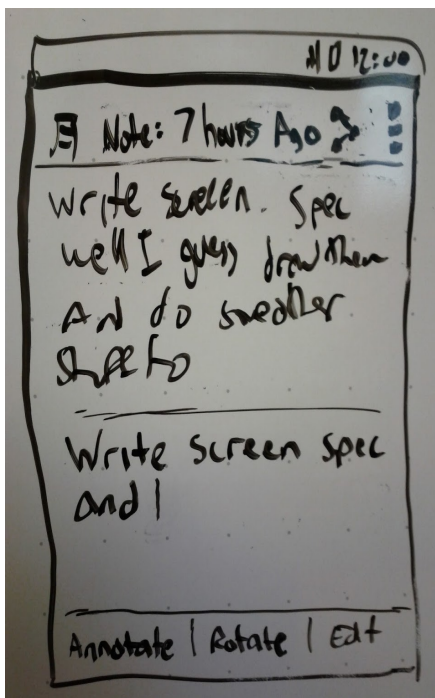 12:00
Note: 7 hours Ago
Write screen. Spec
well I guess draw them
And do
Write screen spec
and
Annotate | Rotate | Edit